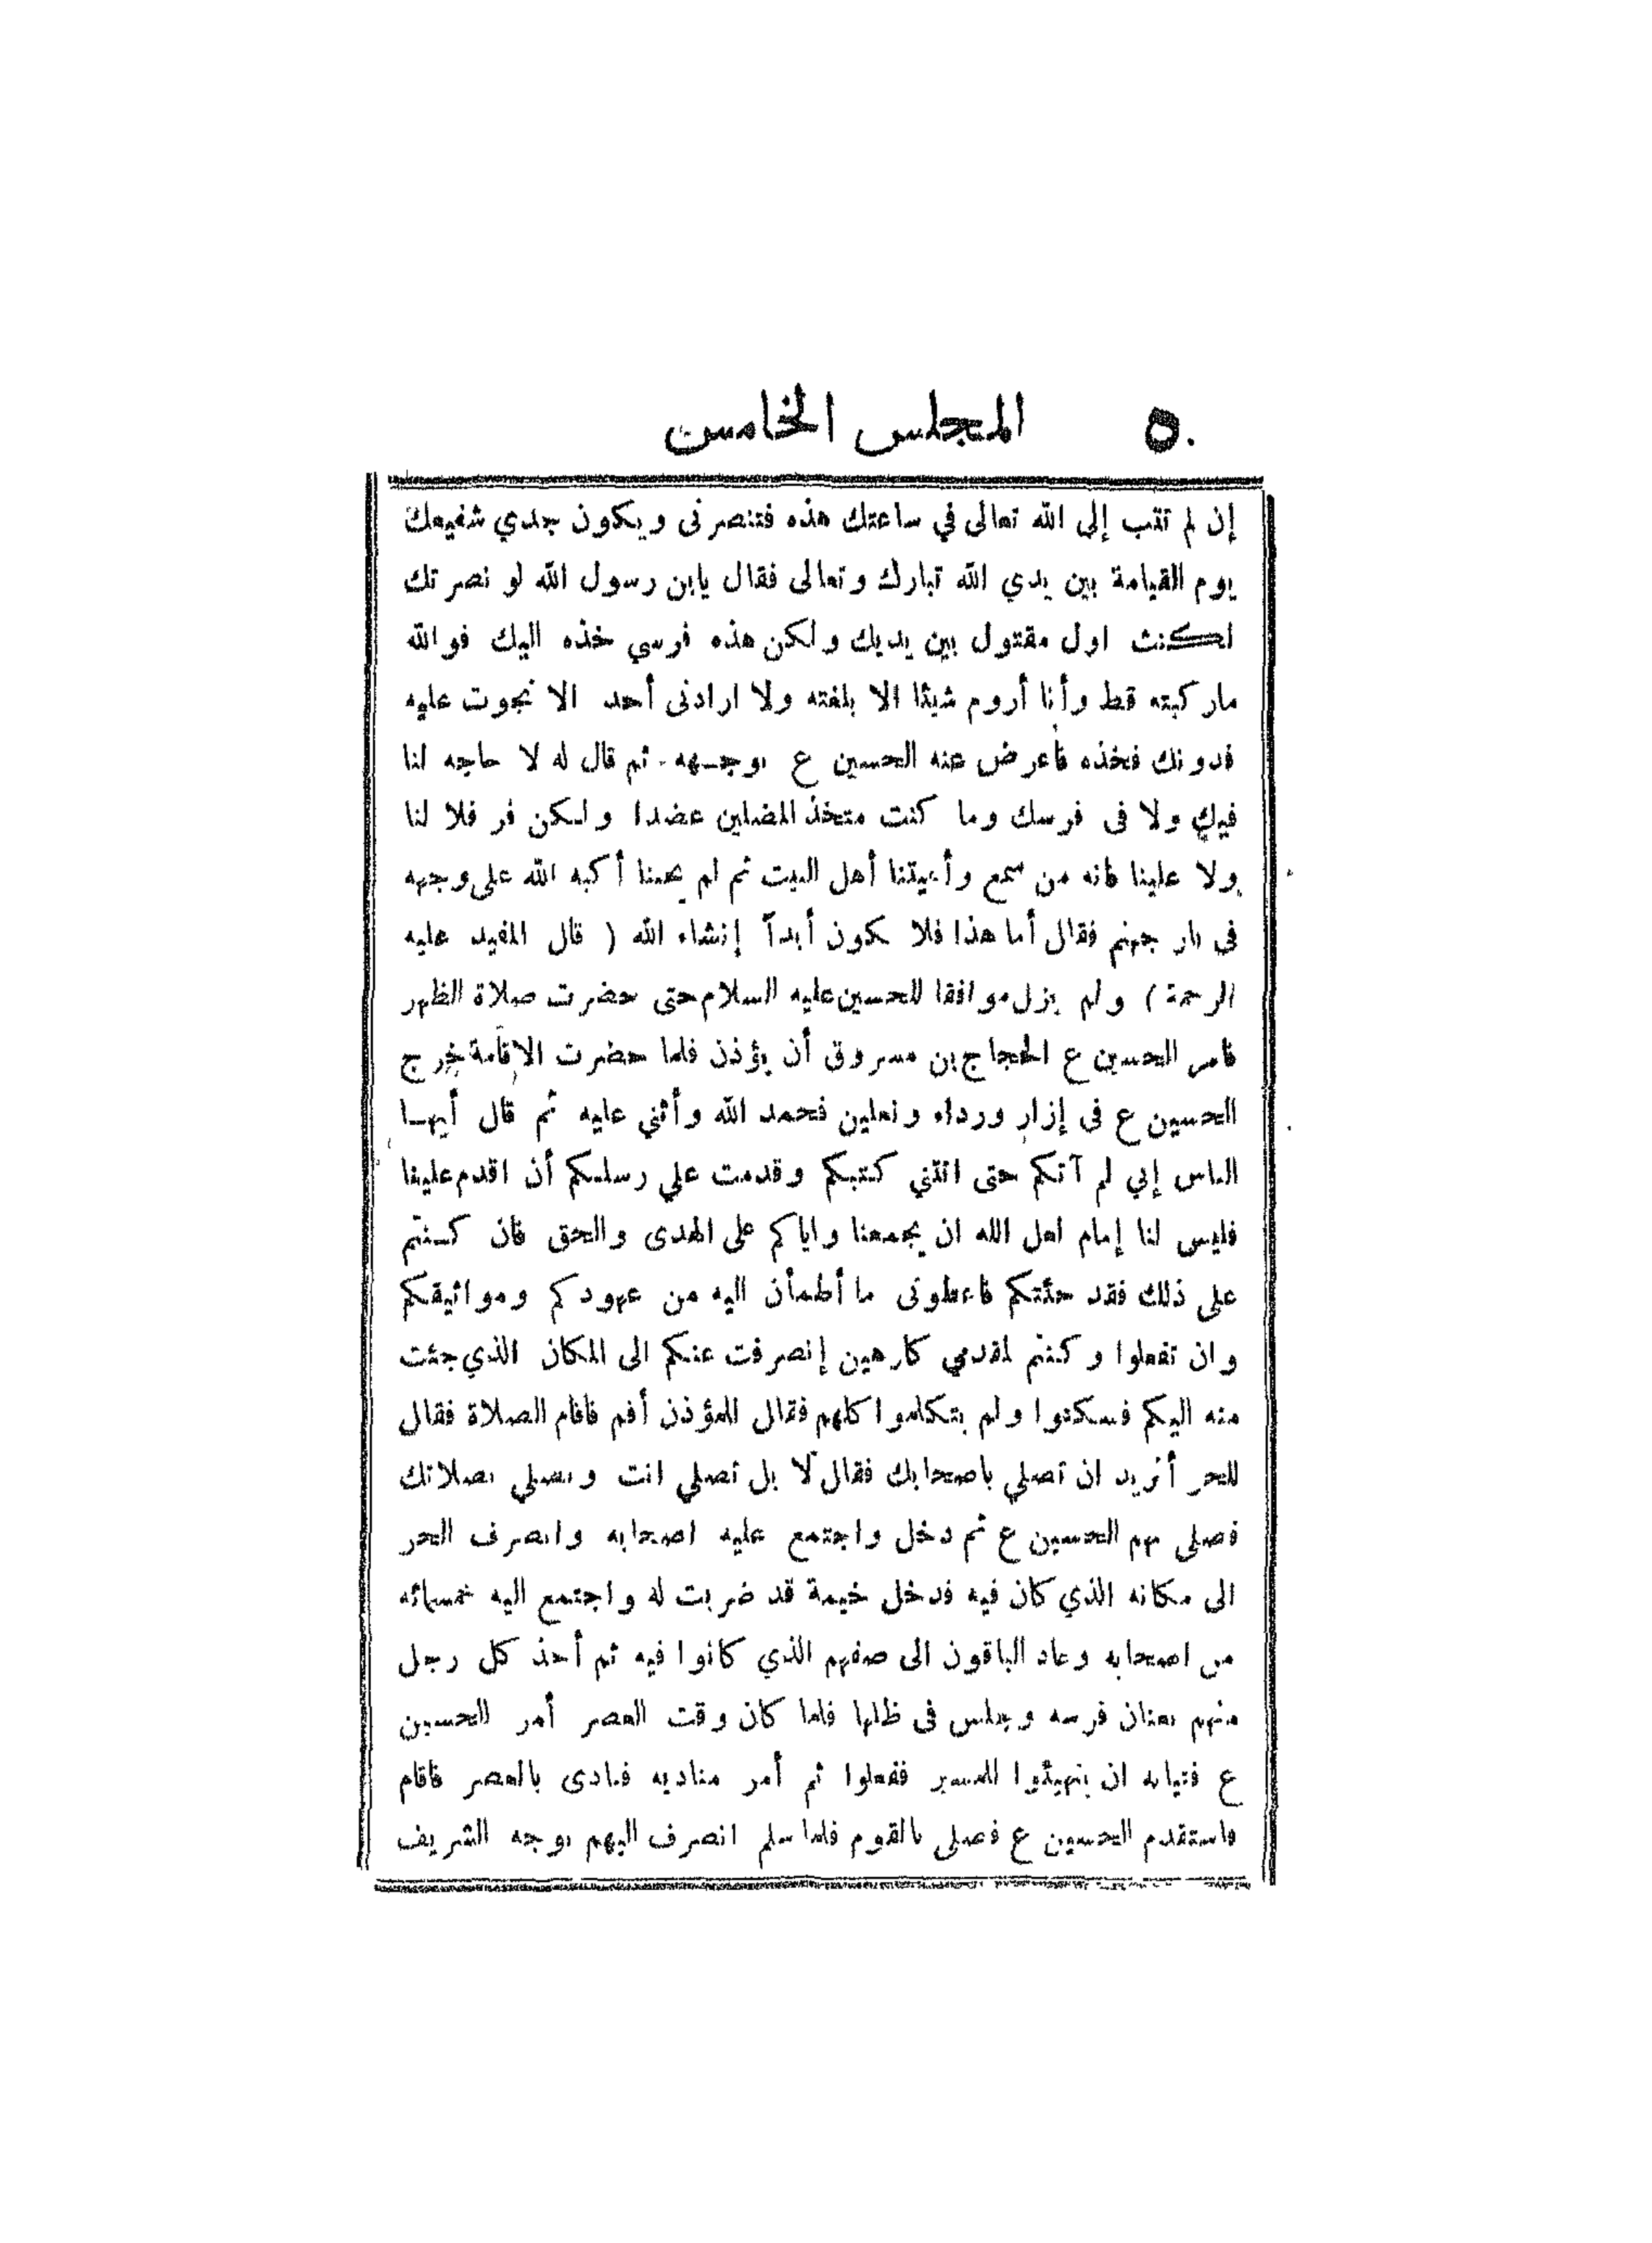 ٥٠ المجلس الخامس
إن لم تتب إلى الله تعالى في ساعتك هذه فتنصرنى ويكون جدي شفيعك
يوم القيامة بين يدي الله تبارك وتعالى فقال يابن رسول الله لو نصرتك
لكنت اول مقتول بين يديك ولكن هذه فرسي خذه اليك فوالله
ماركبته قط وأنا أروم شيئا الا بلغته ولا ارادنى أحد الا نجوت عليه
فدونك فخذه فأعرض عنه الحسين ع بوجهه ثم قال له لا حاجه لنا
فيك ولا فى فرسك وما كنت متخذ المضلين عضدا ولكن فر فلا لنا
ولا علينا فانه من سمع وأعيتنا أهل البيت ثم لم يجبنا أكبه الله على وجهه
في نار جهنم فقال أما هذا فلا يكون أبداً إنشاء الله ( قال المفيد عليه
الرحمة ) ولم يزل موافقا للحسين عليه السلام حتى حضرت صلاة الظهر
فامر الحسين ع الحجاج بن مسروق أن يؤذن فلما حضرت الاقامة خرج
الحسين ع فى إزار ورداء ونعلين فحمد الله وأثني عليه ثم قال أيها
الناس إني لم آتكم حتى اتتني كتبكم وقدمت علي رسلكم أن اقدم علينا
فليس لنا إمام لعل الله ان يجمعنا واياكم على الهدى والحق فان كنتم
على ذلك فقد جئتكم فاعطونى ما أطمأن اليه من عهودكم ومواثيقكم
وان تفعلوا وكنتم لمقدمي كارهين إنصرفت عنكم الى المكان الذي جئت
منه اليكم فسكتوا ولم يتكلموا كلهم فقال للمؤذن أقم فاقام الصلاة فقال
للحر أتريد ان تصلي باصحابك فقال لا بل تصلي انت ونصلي بصلاتك
فصلى بهم الحسين ع ثم دخل واجتمع عليه اصحابه وانصرف الحر
الى مكانه الذي كان فيه فدخل خيمة قد ضربت له واجتمع اليه خمسمائه
من اصحابه وعاد الباقون الى صفهم الذي كانوا فيه ثم أخذ كل رجل
منهم بعنان فرسه وجلس فى ظلها فلما كان وقت العصر أمر الحسين
ع فتيانه ان يتهيئوا للمسير ففعلوا ثم أمر مناديه فنادى بالعصر فاقام
فاستقدم الحسين ع فصلى بالقوم فلما سلم انصرف اليهم بوجه الشريف